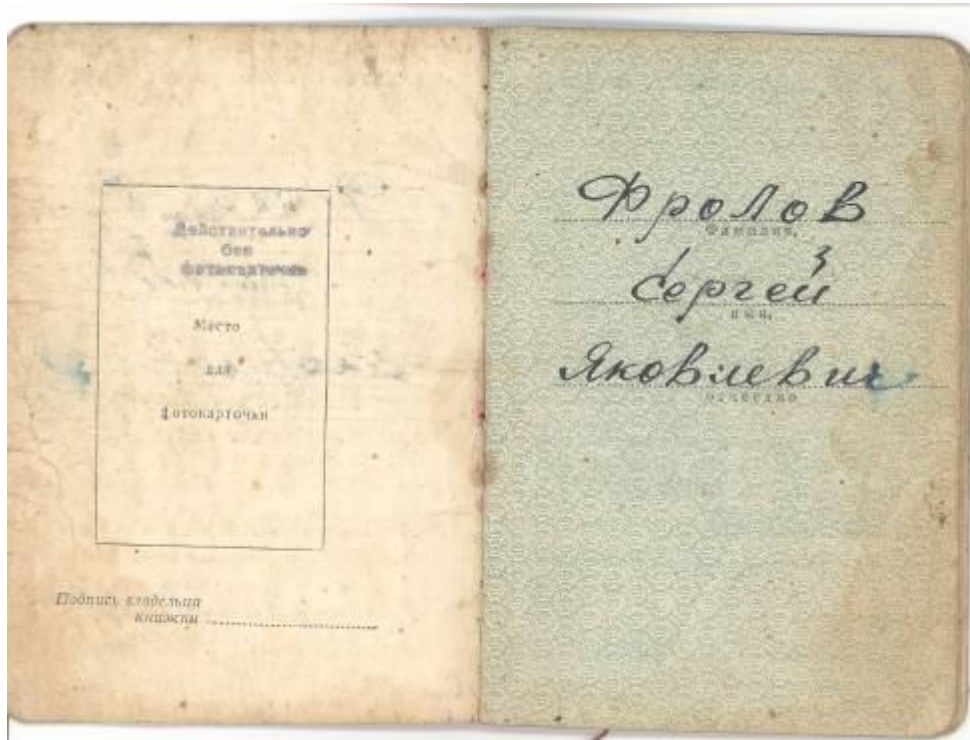 Действительно
без
фотокарточки
Место
для
фотокарточки
Подпись владельца
книжки
Фролов
Фамилия,
Сергей
имя,
Яковлевич
отчество